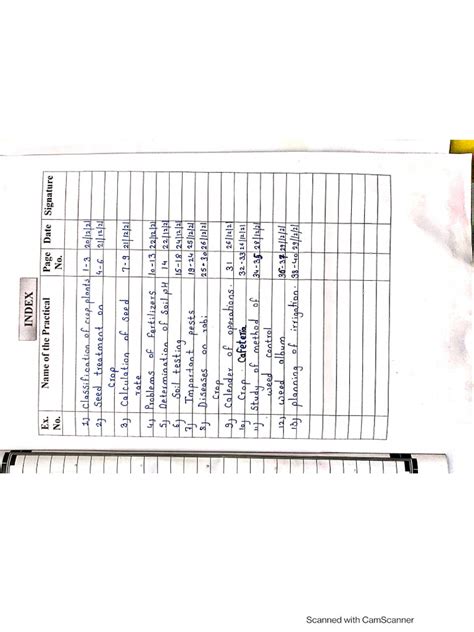 INDEX
Ex. No. Name of the Practical Page No. Date Signature
1) Classification of crop plants 1-3 20/12/21
2) Seed treatment on 4-6 21/12/21
crop
3) Calculation of seed 7-9 21/12/21
rate
4) Problems of Fertilizers 10-13 22/12/21
5) Determination of Soil pH 14 22/12/21
6) Soil testing 15-18 24/12/21
7) Important pests 19-24 25/12/21
8) Diseases on rabi 25-30 26/12/21
Crop
9) Calender of operations. 31 26/12/21
10) Crop Cafeteria 32-33
11) Study of method of 34-35 28/12/21
weed control
12) weed album 36-37 29/12/21
13) planning of irrigation. 38-40 29/12/21
Scanned with CamScanner